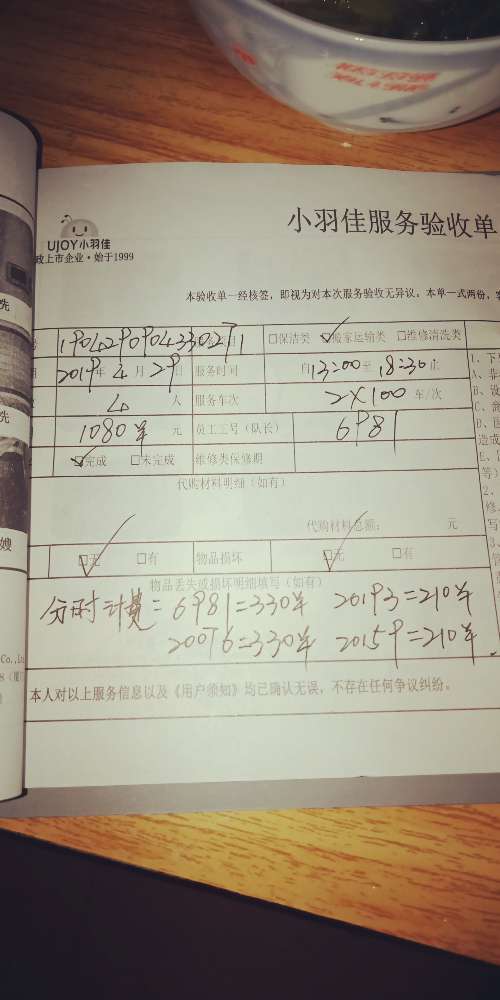 小羽佳服务验收单
UJOY小羽佳
政上市企业·始于1999
本验收单一经核签，即视为对本次服务验收无异议。本单一式两份，客
190429090433027 目 □保洁类 ☑搬家运输类 □维修清洗类
2019年4月29日 服务时间 自13:00至18:30止
4 人 服务车次 2×100 车/次
1080 元 员工工号（队长） 6981
☑完成 □未完成 维修类保修期
代购材料明细（如有）
代购材料总额： 元
☑无 □有 物品损坏 ☑无 □有
物品丢失或损坏明细填写（如有）
分时计费=6981=330羊 20193=210羊
20076=330羊 20159=210羊
本人对以上服务信息以及《用户须知》均已确认无误，不存在任何争议纠纷。
先
先
嫂
Co.,Lt
1、下
A、非
B、设
造成
等)
2、
修、
写
3、